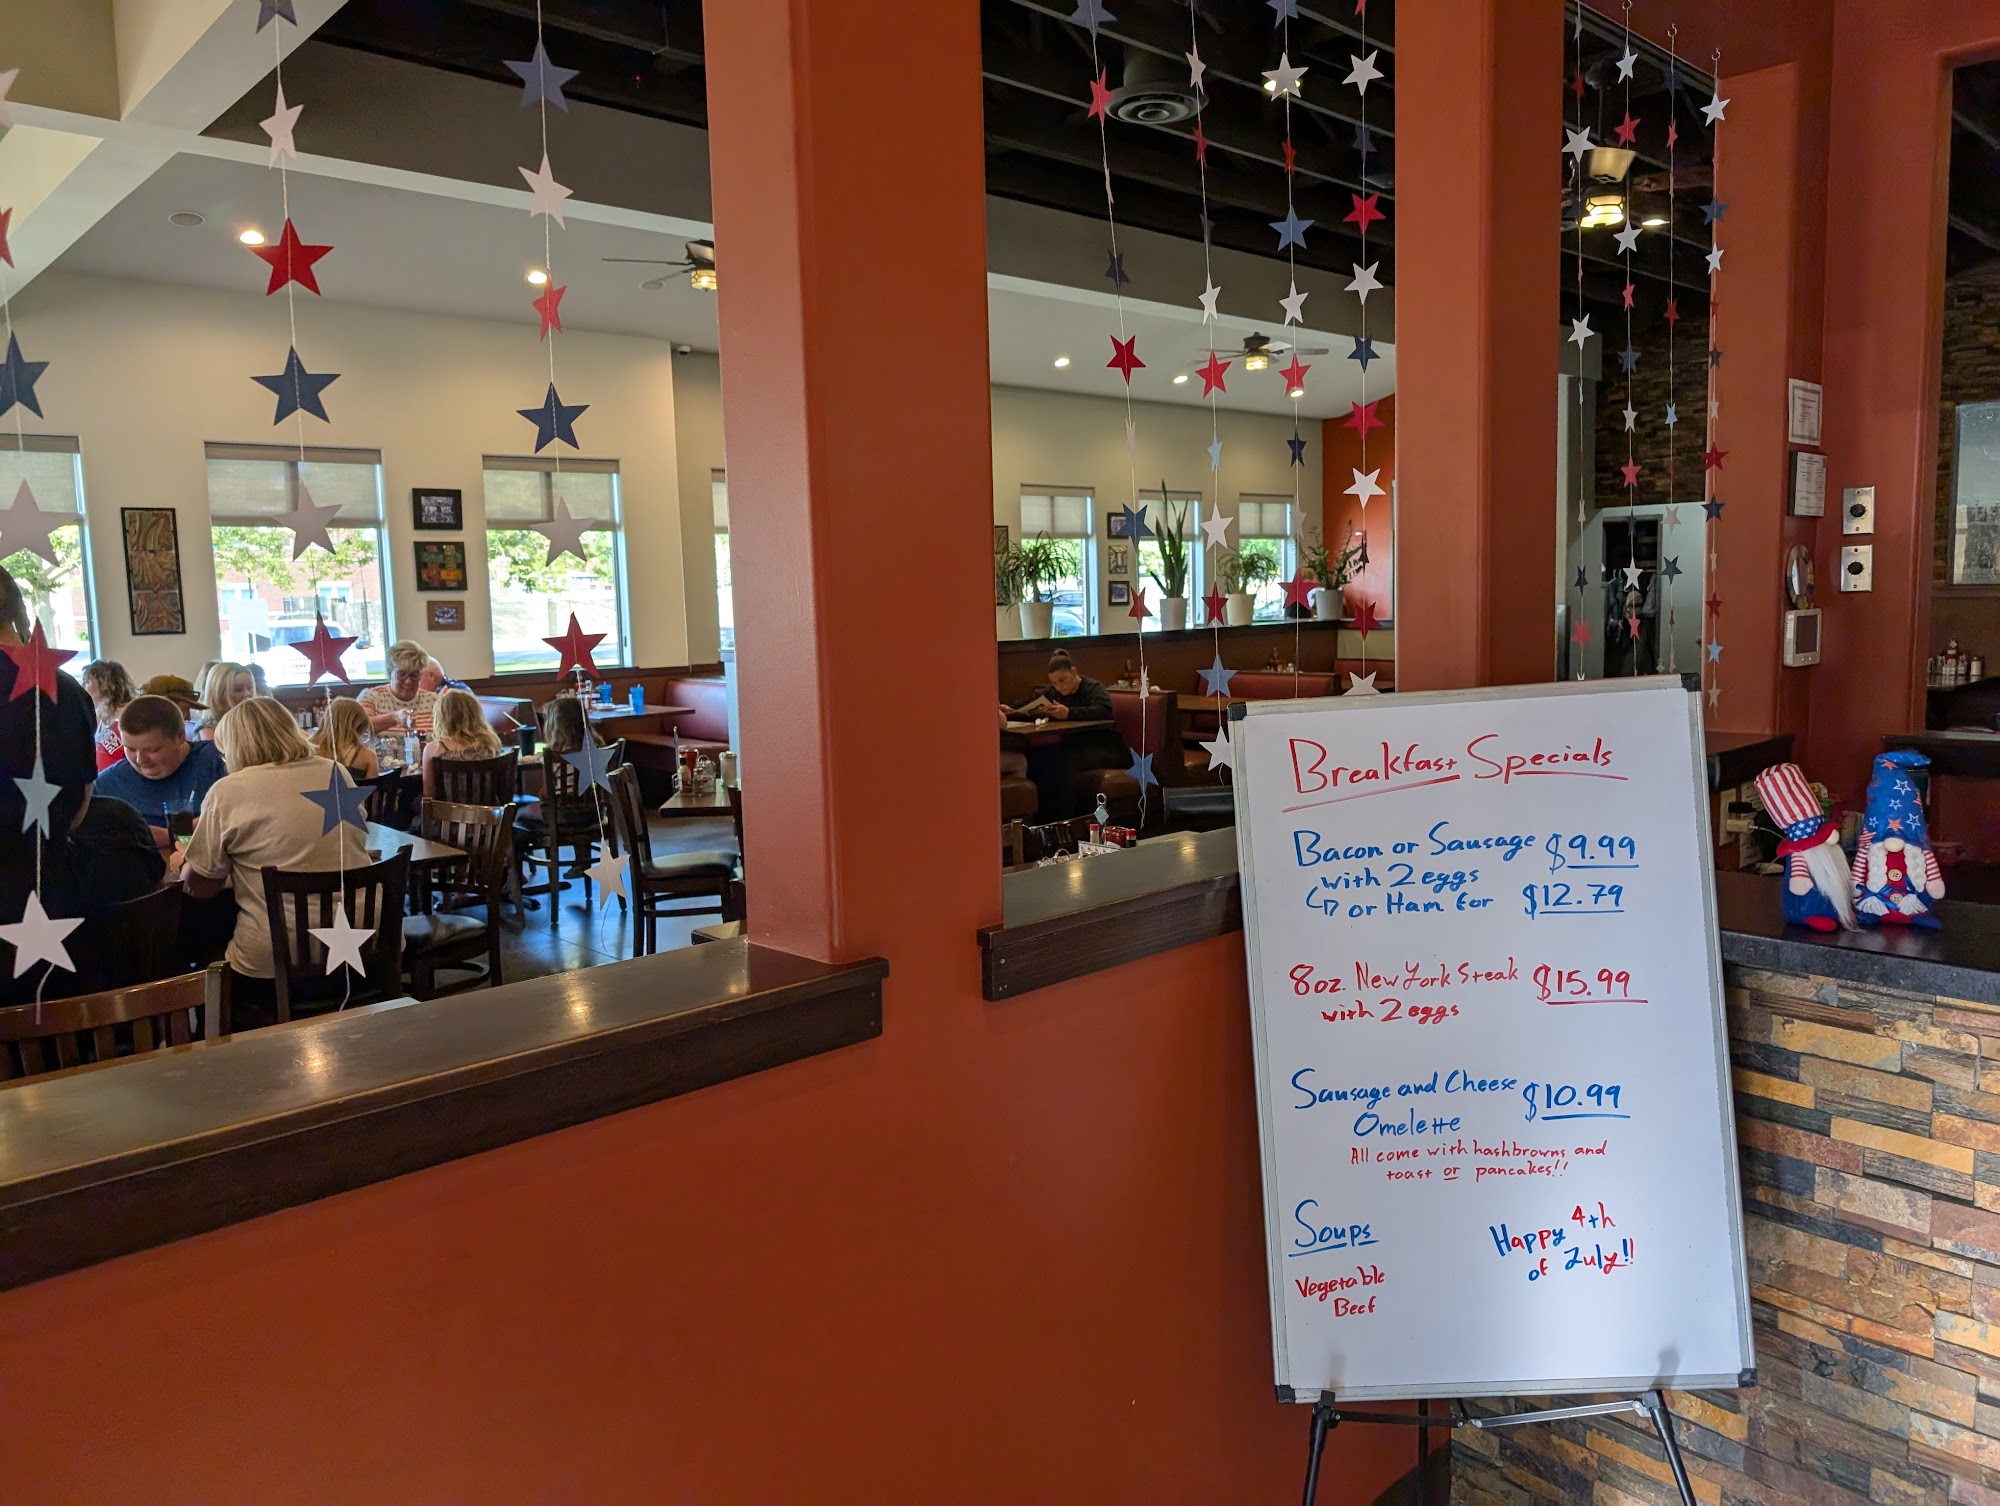 Breakfast Specials
Bacon or Sausage $9.99
with 2 eggs
or Ham for $12.79
8oz. New York Steak $15.99
with 2 eggs
Sausage and Cheese $10.99
Omelette
All come with hashbrowns and
toast or pancakes!!
Soups
Vegetable
Beef
Happy 4th
of July!!